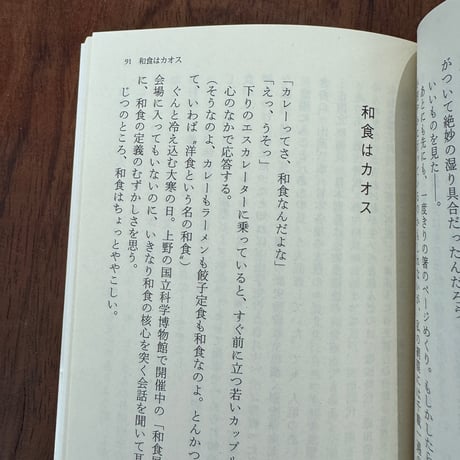 がついて絶妙の湿り具合だったんだろう
いいものを見た――。
あとにも先にも、一度きりの箸のページめくり。もしかした
91　和食はカオス
和食はカオス
「カレーってさ、和食なんだよな」
「えっ、うそっ」
下りのエスカレーターに乗っていると、すぐ前に立つ若いカップル
心のなかで応答する。
（そうなのよ、カレーもラーメンも餃子定食も和食なのよ。とんかつ
て、いわば〝洋食という名の和食〟）
ぐんと冷え込む大寒の日。上野の国立科学博物館で開催中の「和食展
会場に入ってもいないのに、いきなり和食の核心を突く会話を聞いて耳
に、和食の定義のむずかしさを思う。
じつのところ、和食はちょっとややこしい。